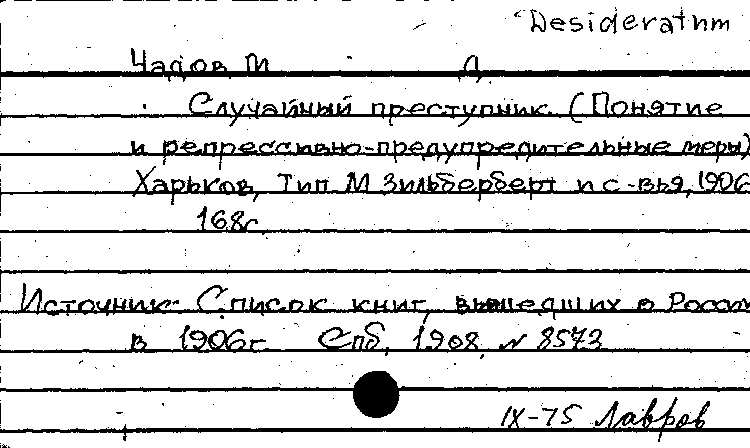 Desideratum
Чадов М Д
Случайный преступник. (Понятие
и репрессивно-предупредительные меры)
Харьков, Тип М Зильберберг и с-вья, 1906
168с.
Источник: Список книг, вышедших в России
в 1906г. Спб, 1908, № 8573
IX-75 Лавров